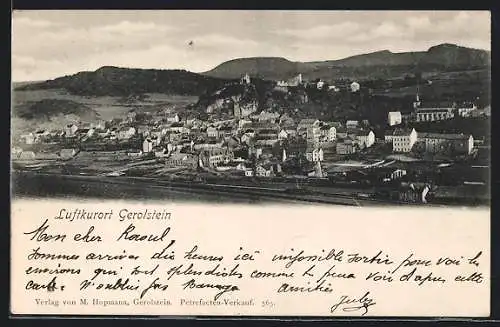 Luftkurort Gerolstein
Mon cher Raoul
Sommes arrives dix heures ici impossible sortir pour voir les
environs qui sont splendides comme tu peux voir d'après cette
carte. N'oublie pas Amitiés
Jules
Verlag von M. Hopmann, Gerolstein. Petrefacten-Verkauf. 365.